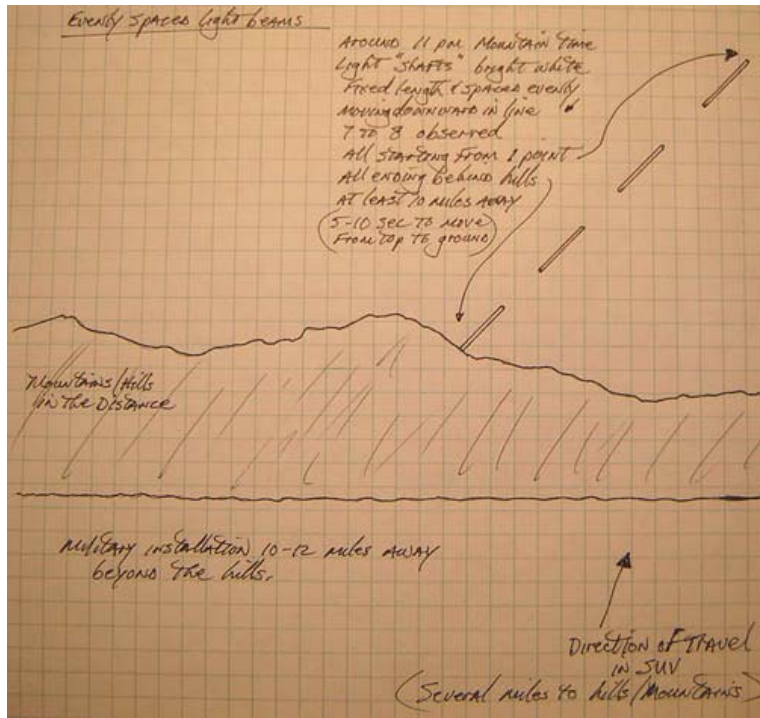 Evenly spaced light beams
Around 11 pm Mountain Time
Light "shafts" bright white
Fixed length & spaced evenly
Moving downward in line
7 to 8 observed
All starting from 1 point
All ending behind hills
At least 10 miles away
(5-10 sec to move
from top to ground)
Mountains/Hills
in the Distance
Military installation 10-12 miles away
beyond the hills.
Direction of Travel
in SUV
(Several miles to hills/mountains)